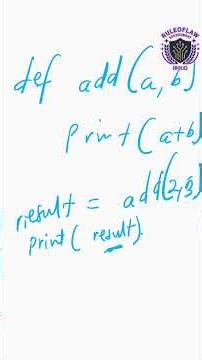 RULEOFLAW
def add(a, b)
print(a+b)
result = add(2,3)
print( result).